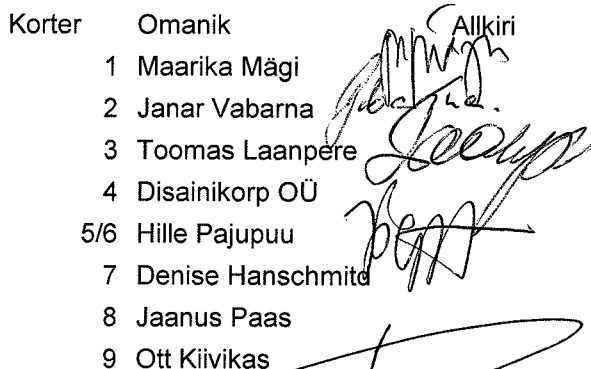 Korter Omanik Allkiri
1 Maarika Mägi
2 Janar Vabarna
3 Toomas Laanpere
4 Disainikorp OÜ
5/6 Hille Pajupuu
7 Denise Hanschmitd
8 Jaanus Paas
9 Ott Kiivikas